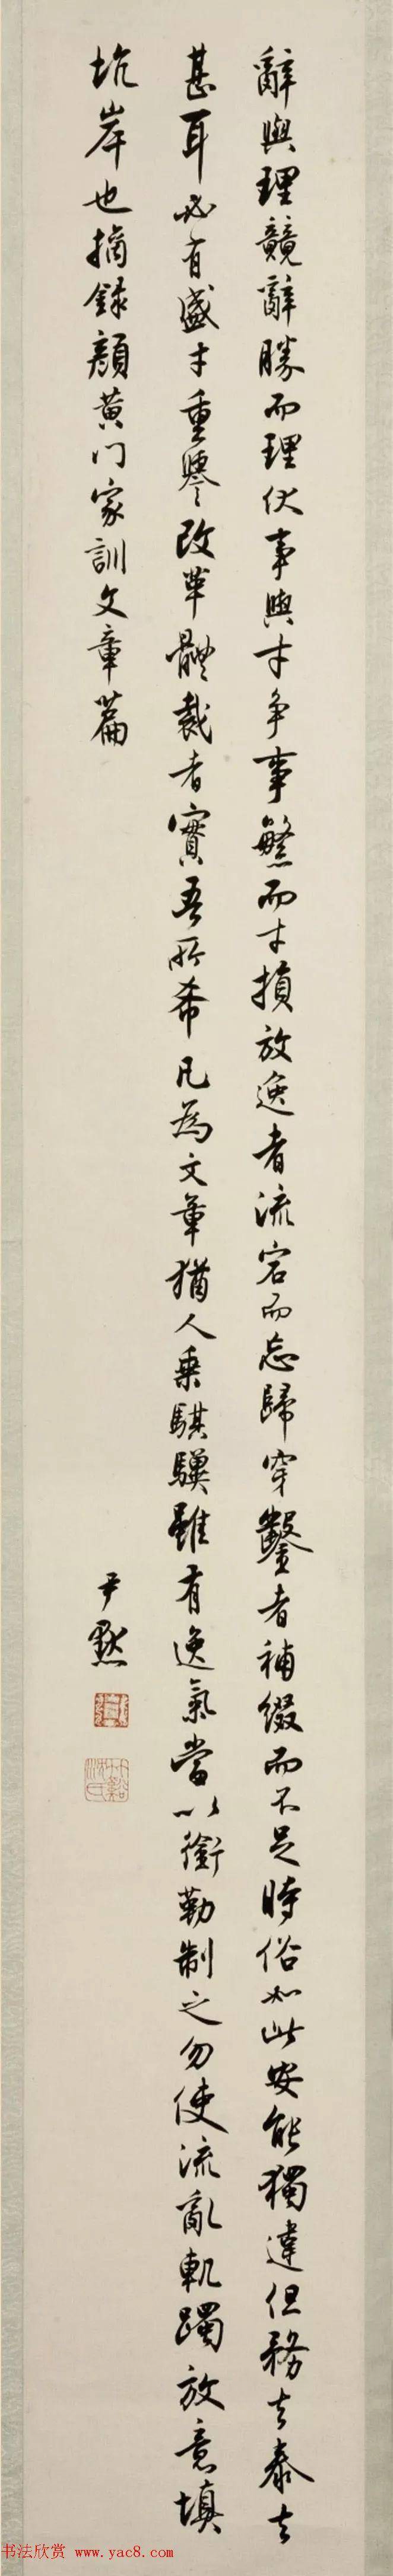 辭與理競辭勝而理伏事與才争事繁而才損放逸者流宕而忘歸穿鑿者補缀而不足時俗如此安能獨違但務去泰去
甚耳必有盛才重譽改革體裁者實吾所希凡為文章猶人乘騏驥雖有逸氣當以銜勒制之勿使流亂軌躅放意填
坑岸也摘録顔黄门家訓文章篇
尹默
竹谿沈氏
书法欣赏 www.yac8.com